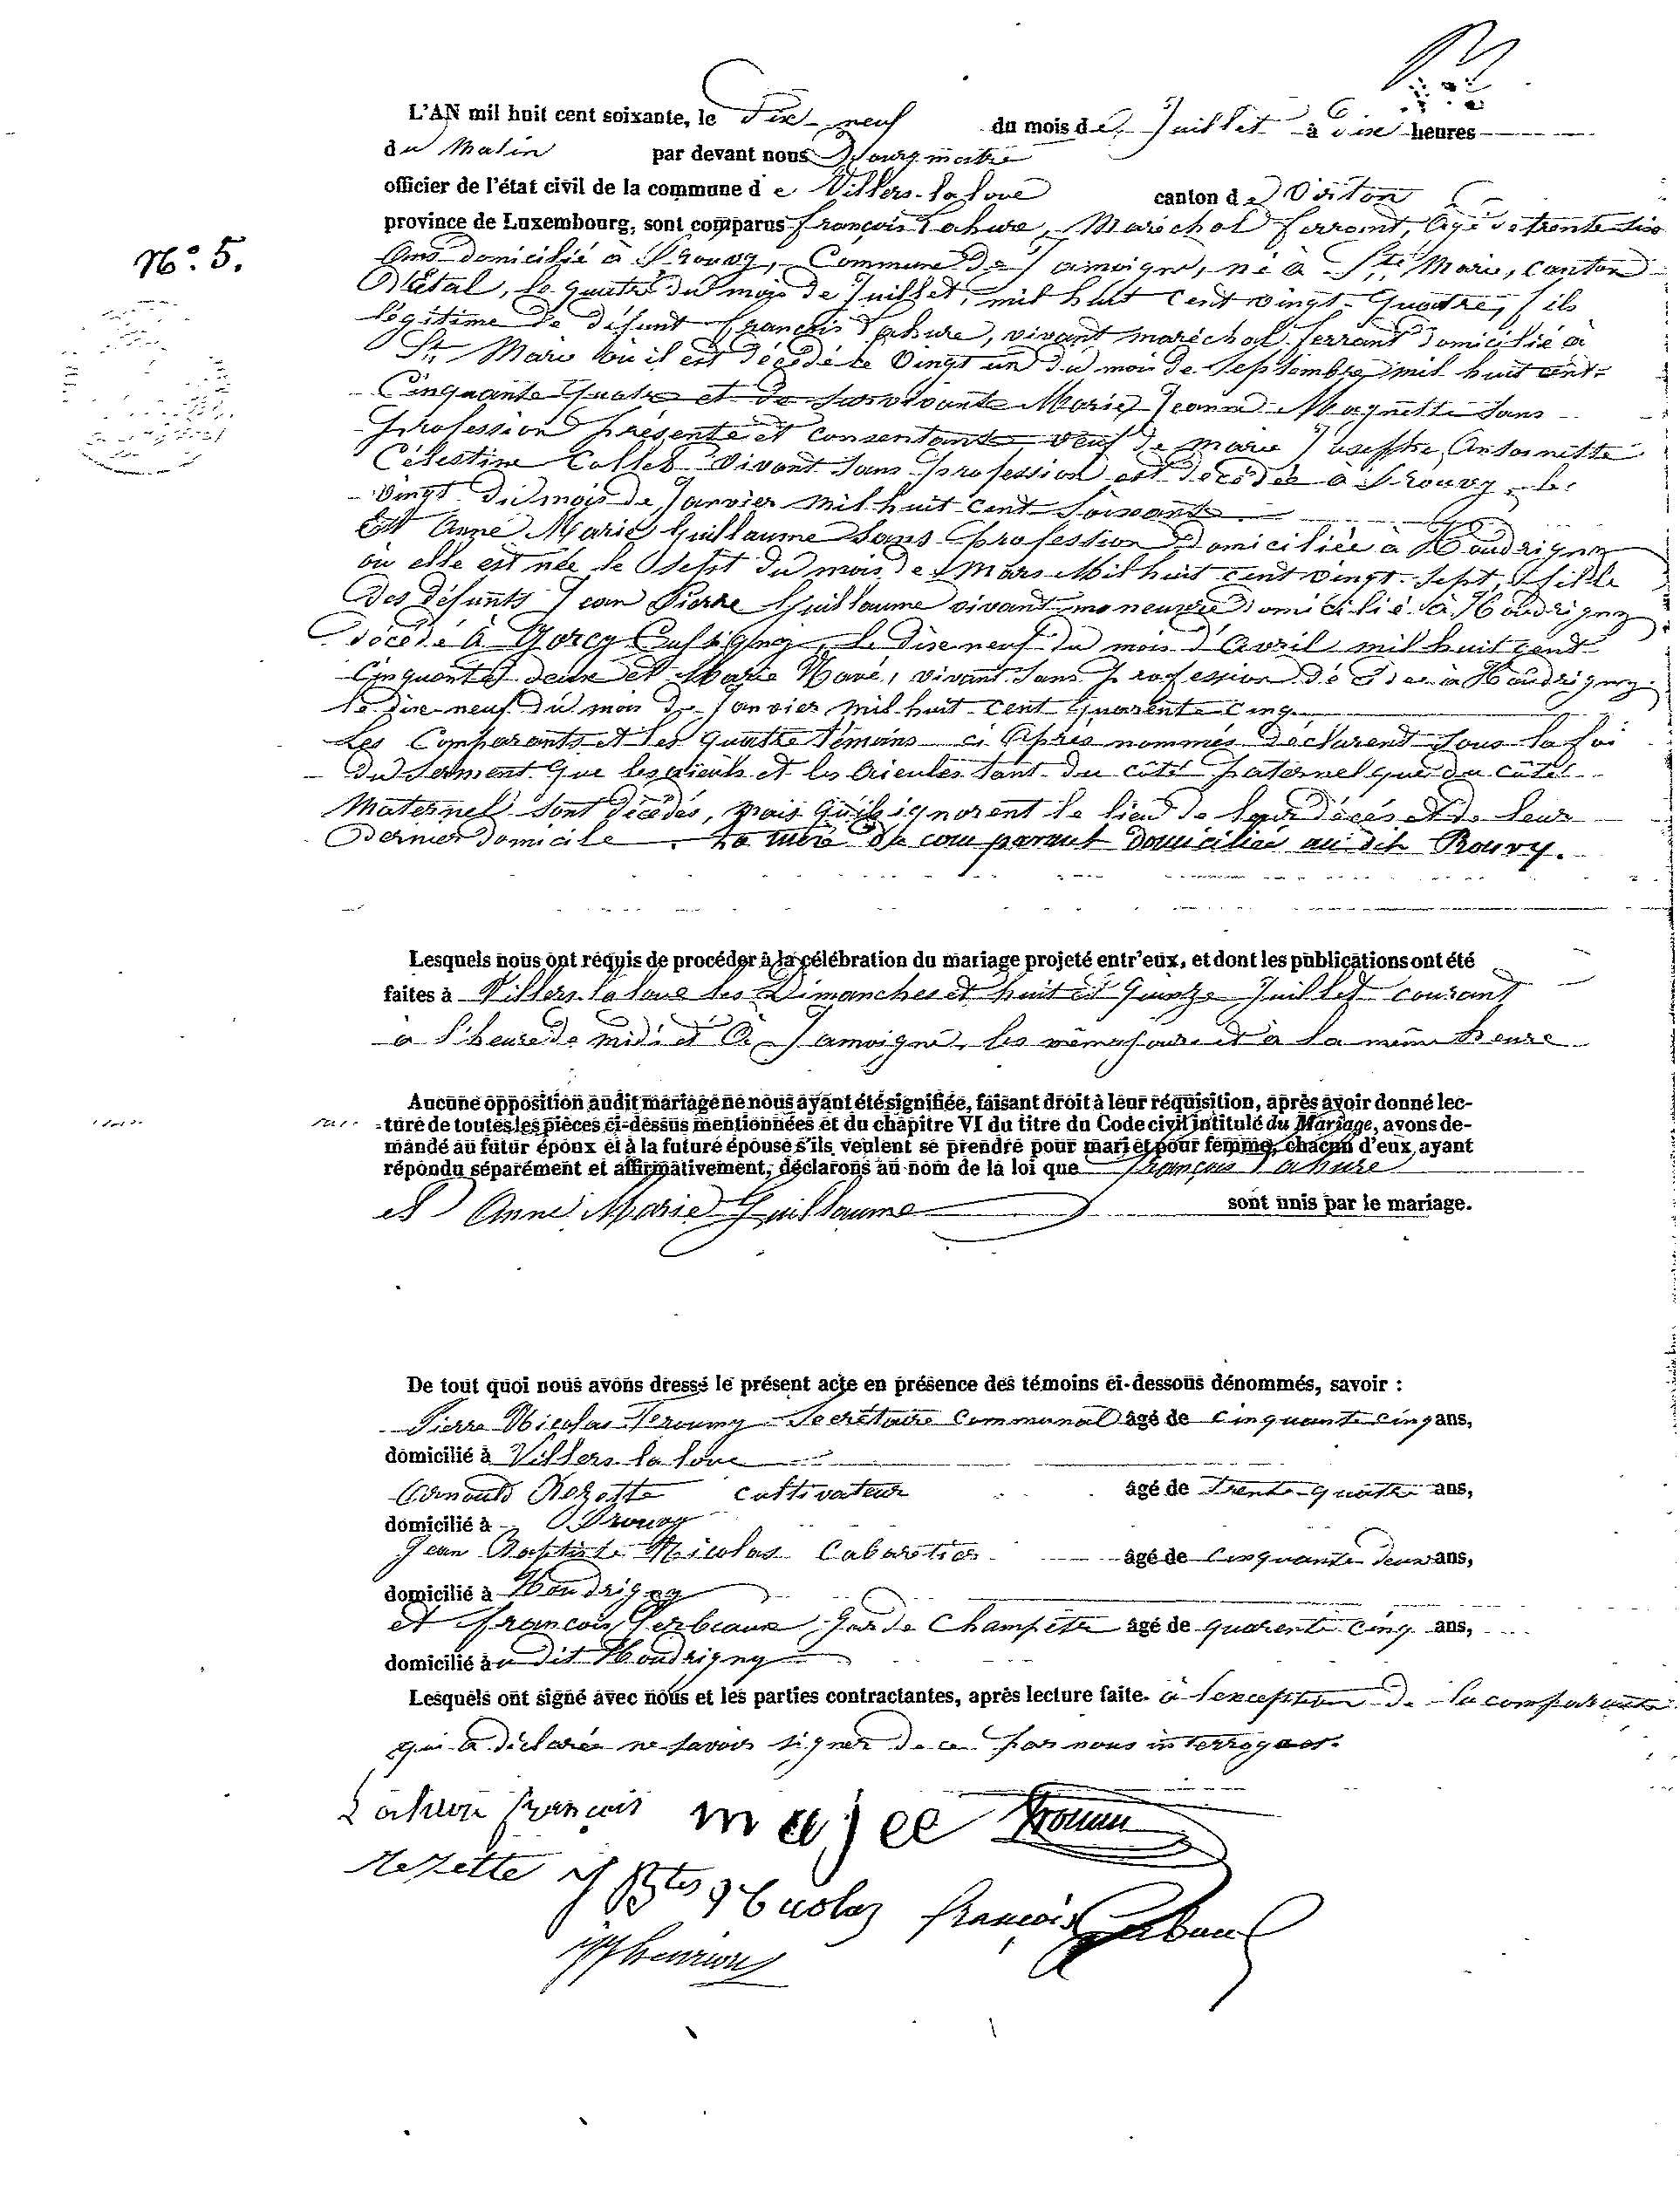 L'AN mil huit cent soixante, le Dix-neuf du mois de Juillet à Dix heures
du Matin par devant nous Bourgmestre
officier de l'état civil de la commune de Villers-la-loue canton de Virton
province de Luxembourg, sont comparus françois Lahure, Maréchal ferrant, agé de trente six
N° 5.
Ans domicilié à Prouvy, Commune de Jamoigne, né à Ste Marie, canton
D'Etal, le quatre du mois de Juillet, mil huit cent vingt-quatre, fils
légitime de défunt françois Lahure, vivant maréchal ferrant domicilié à
Ste Marie où il est décédé le Vingt un du mois de Septembre mil huit cent
Cinquante quatre et de survivante Marie Jeanne Magnette sans
profession présente et consentante veuf de Marie Josephe Antoinette
Célestine Collet vivant sans profession est décédée à Prouvy, le
vingt du mois de Janvier mil huit cent Soixante
Et Anne Marie Guillaume sans profession Domiciliée à Houdrigny
où elle est née le Sept du mois de Mars Mil huit cent vingt-sept, fille
Des défunts Jean Pierre Guillaume vivant manœuvre domicilié à Houdrigny
décédé à Gorcy Cussigny, le dixe neuf du mois d'Avril mil huit cent
Cinquante deux et Marie Havé, vivant sans profession décédée à Houdrigny
le dixe-neuf du mois de Janvier mil huit cent quarente cinq
Les Comparants et les quatre témoins ci après nommés déclarent sous la foi
du serment que les aieuls et les aieules tant du côté paternel que du côté
Maternel sont décédés, mais qu'ils ignorent le lieu de leur décès et de leur
Dernier domicile. La mère du comparant Domiciliée au dit Prouvy.
Lesquels nous ont requis de procéder à la célébration du mariage projeté entr'eux, et dont les publications ont été
faites à Villers-la-loue les Dimanches et huit et Quinze Juillet courant
à l'heure de midi et à Jamoigne, les mêmes jours et à la même heure
Aucune opposition audit mariage ne nous ayant été signifiée, faisant droit à leur réquisition, après avoir donné lec-
ture de toutes les pièces ci-dessus mentionnées et du chapitre VI du titre du Code civil intitulé du Mariage, avons de-
mandé au futur époux et à la future épouse s'ils veulent se prendre pour mari et pour femme, chacun d'eux ayant
répondu séparément et affirmativement, déclarons au nom de la loi que françois Lahure
et Anne Marie Guillaume sont unis par le mariage.
De tout quoi nous avons dressé le présent acte en présence des témoins ci-dessous dénommés, savoir :
Pierre Nicolas Secrétaire Communal âgé de Cinquante cinq ans,
domicilié à Villers-la-loue
Arnould Rezette cultivateur âgé de trente-quatre ans,
domicilié à Prouvy
Jean Baptiste Nicolas Cabaretier âgé de Cinquante Deux ans,
domicilié à Houdrigny
et françois Gerbeaux Garde Champêtre âgé de quarente cinq ans,
domicilié au dit Houdrigny
Lesquels ont signé avec nous et les parties contractantes, après lecture faite. à l'exception de la comparante
qui a déclarée ne savoir signer de ce par nous interrogées.
Lahure françois majee
Rezette J Btes Nicolas françois